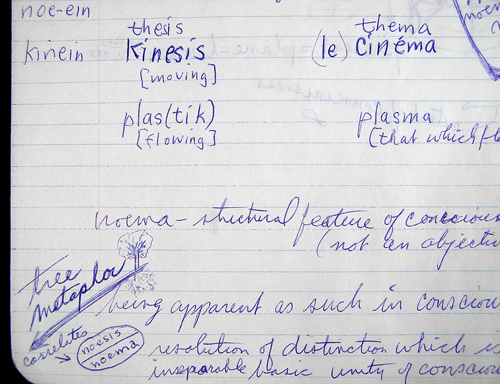 noe-ein
thesis thema
kinein kinesis (le) cinéma
[moving]
plas(tik) plasma
[flowing] (that which fl
noema - structural feature of conscious
(not an objectiv
tree
metaphor
being apparent as such in conscious
correlates
noesis
noema
resolution of distinction which is
inseparable basic unity of conscious